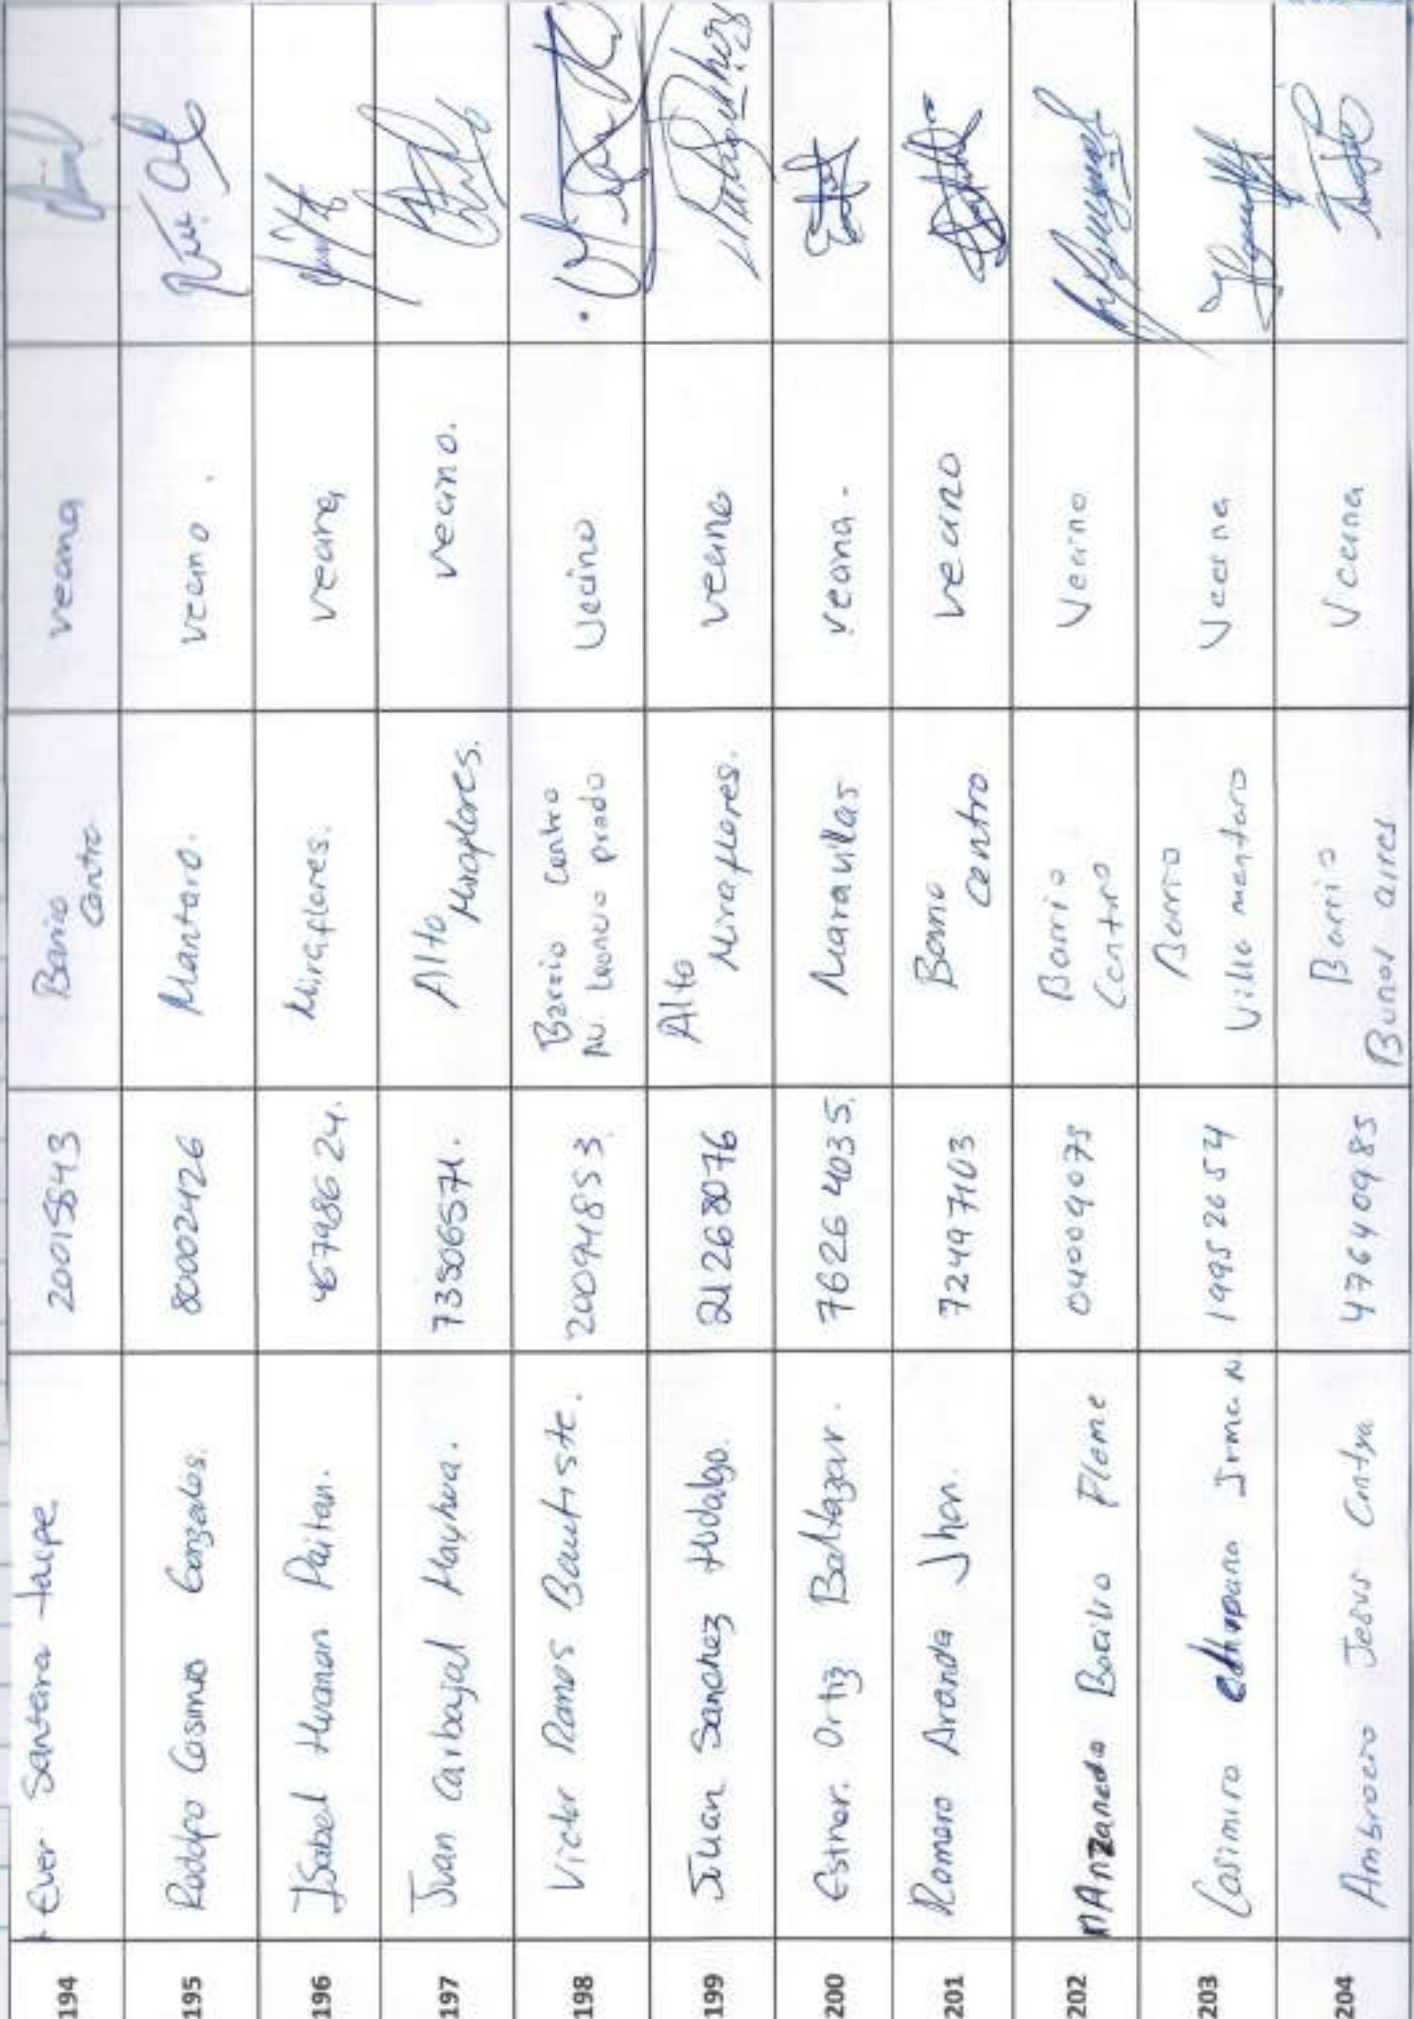 194 Ever Santana taipe 20015843 Barrio Centro vecina
195 Rodolfo Casimos Gonzales. 80002426 Mantaro. vecino.
196 Isabel Huaman Paitan. 46798624. Miraflores. vecina
197 Juan Carbajal Mayhua. 73506571. Alto Miraflores. vecino.
198 Victor Ramos Bautista. 20094853. Barrio Centro Av. Leoncio prado Vecino
199 Juan Sanchez Hidalgo. 21268076 Alto Miraflores. vecino
200 Ortiz Baltazar. 76264035. Maravillas vecina.
201 Romero Aranda Jhon. 72497103 Barrio Centro vecino
202 MAnzanedo Basilio 04009075 Barrio Centro Vecino
203 Casimiro Irma N. 19952654 Barrio Villa mantaro Vecina
204 Jesus 47640985 Barrio Bunos aires Vecina